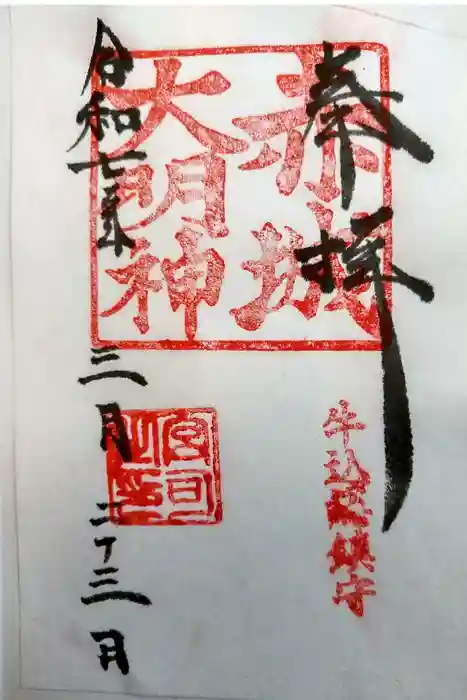 奉拝
赤城
大明神
牛込総鎮守
宮司
之印
令和七年三月二十三日